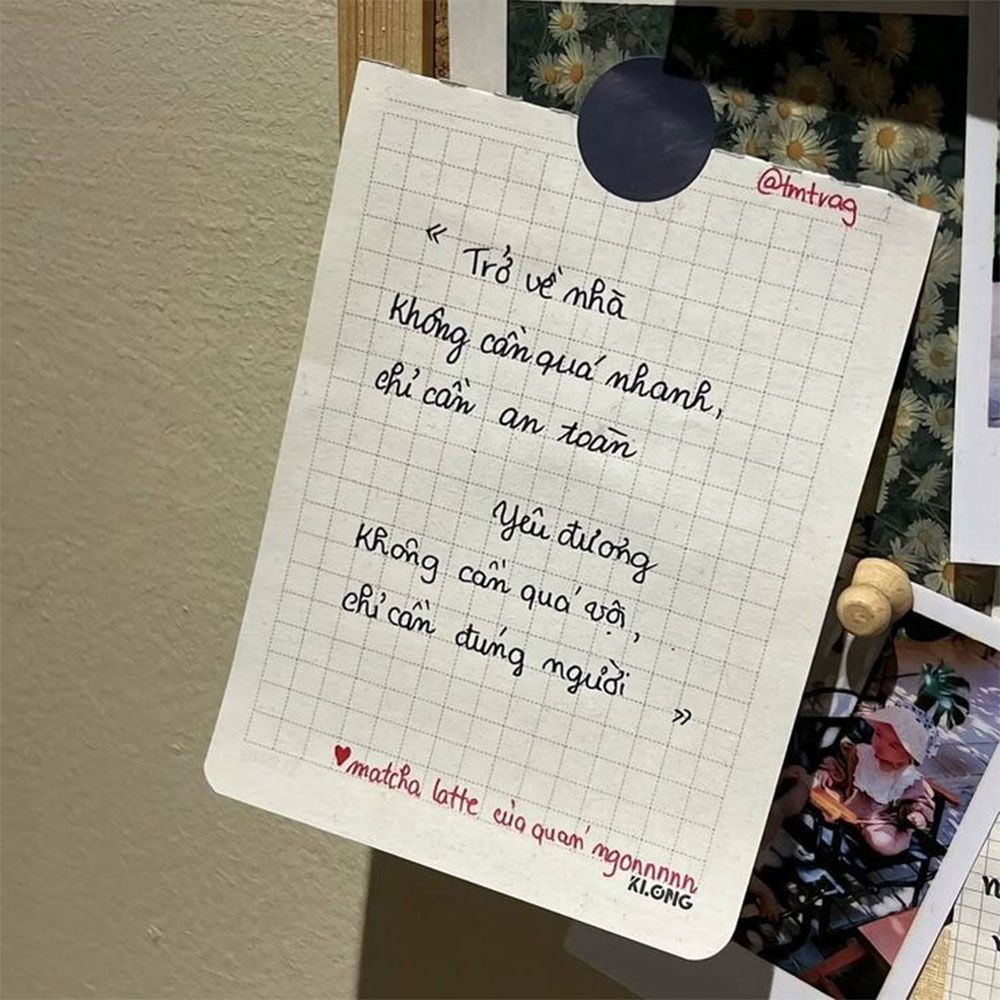 @tmtrag
« Trở về nhà
Không cần quá nhanh,
chỉ cần an toàn
Yêu đương
Không cần quá vội,
chỉ cần đúng người
»
♥matcha latte của quán ngonnnnn
KI.ONG